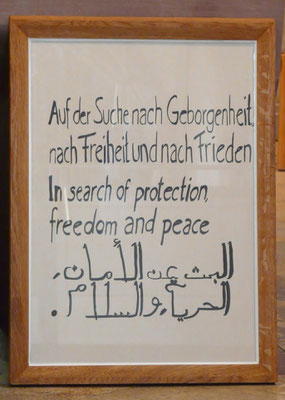 Auf der Suche nach Geborgenheit,
nach Freiheit und nach Frieden
In search of protection,
freedom and peace
البث عن الأمان،
والسلام.